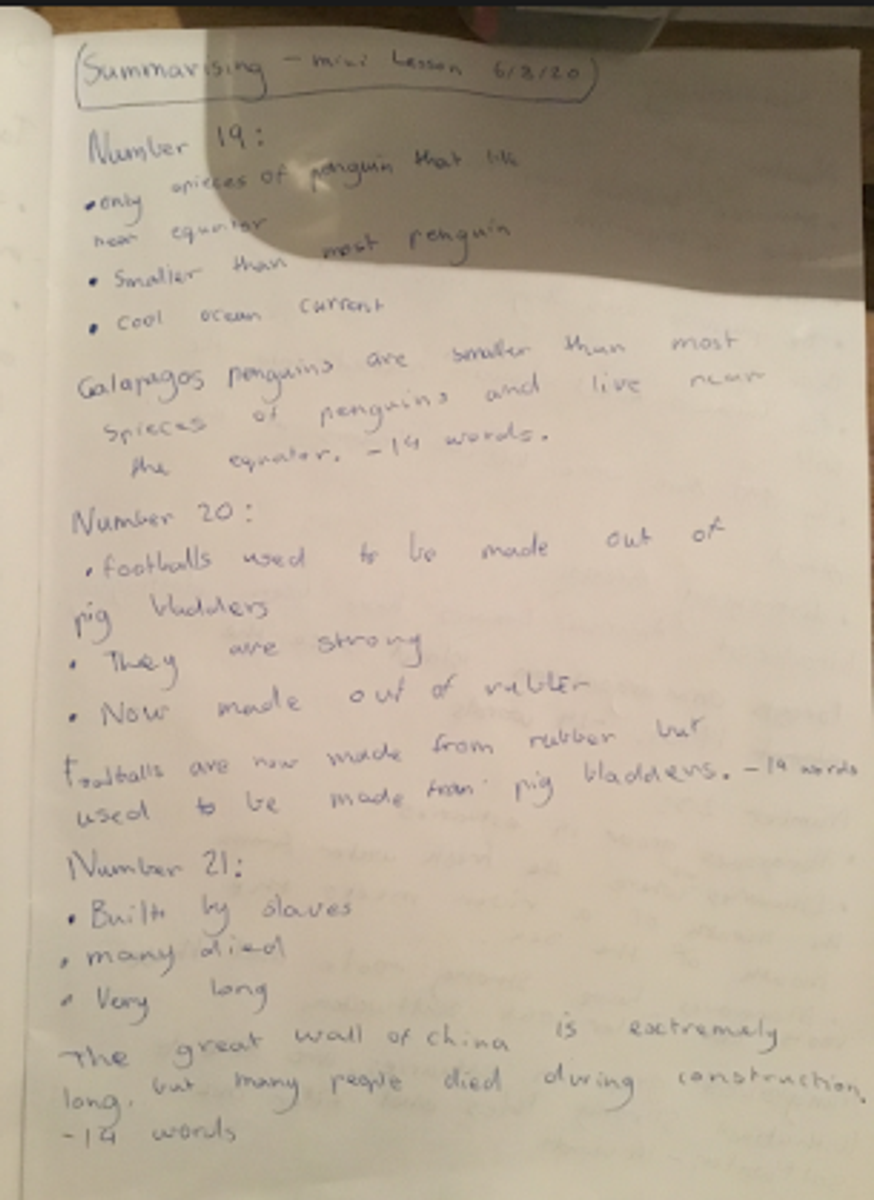 Summarising - mini Lesson 6/8/20
Number 19:
• only spieces of penguin that live
near equator
• Smaller than most penguin
• cool ocean current
Galapagos penguins are smaller than most
spieces of penguins and live near
the equator. - 14 words.
Number 20:
• footballs used to be made out of
pig bladders
• They are strong
• Now made out of rubber
Footballs are now made from rubber but
used to be made from pig bladders. - 14 words
Number 21:
• Built by slaves
• many died
• Very long
The great wall of china is extremely
long. but many people died during construction.
- 14 words